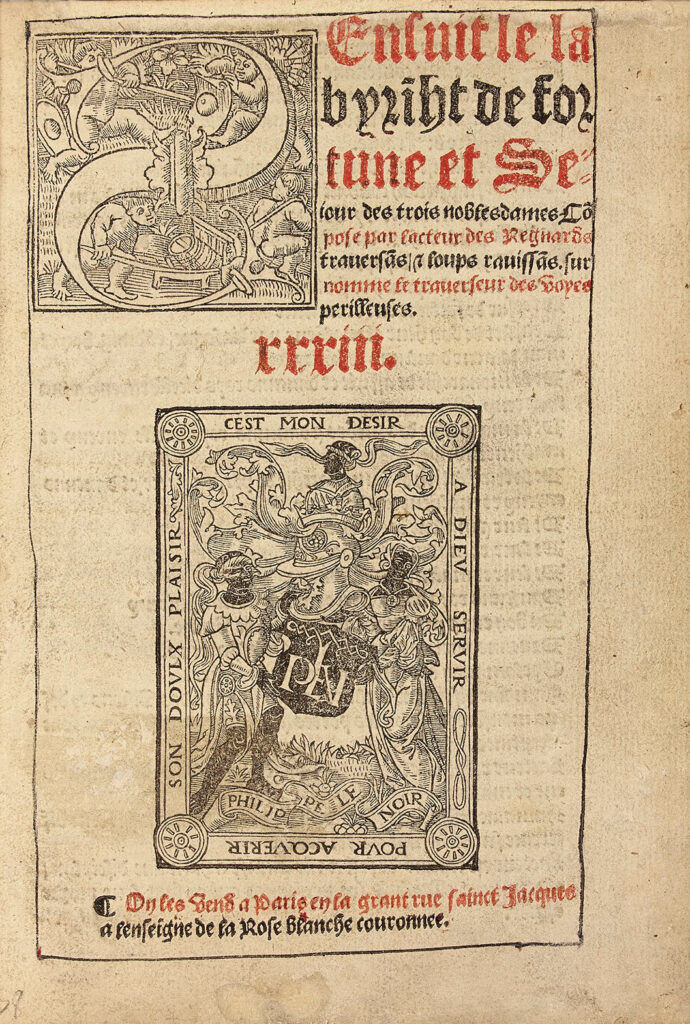 Ensuit le la
byrĩht de for
tune et Se-
iour des trois nobles dames Cõ
pose par lacteur des Regnards
trauersãs / & loups rauissãs. sur
nomme le trauerseur des Voyes
perilleuses.
xxxiii.
CEST MON DESIR
A DIEV SERVIR
POVR ACQVERIR
SON DOVLX PLAISIR
PLN
PHILIP PE LE NOIR
¶ On les Vend a Paris en la grant rue sainct Jacques
a lenseigne de la Rose blanche couronnee.